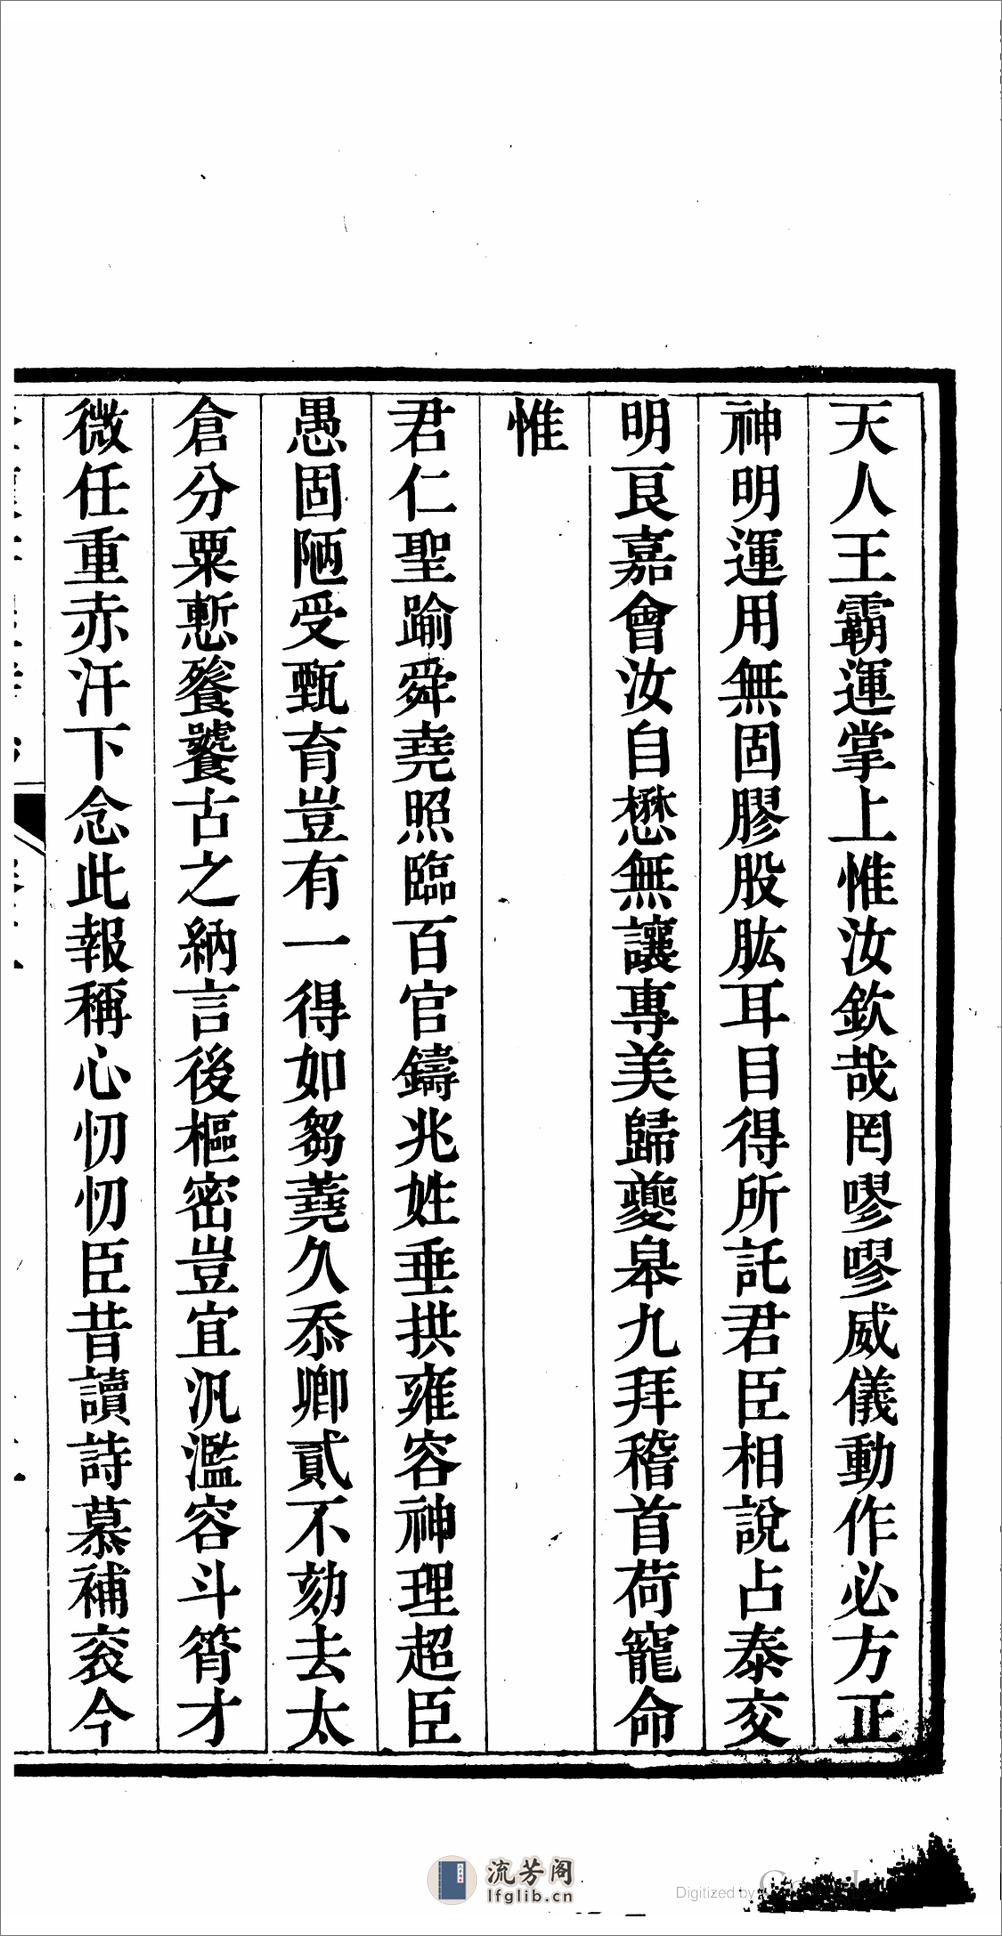 天人王霸運掌上惟汝欽哉罔嘐嘐威儀動作必方正
神明運用無固膠股肱耳目得所託君臣相說占泰交
明良嘉會汝自懋無讓專美歸夔皋九拜稽首荷寵命
惟
君仁聖踰舜堯照臨百官鑄兆姓垂拱雍容神理超臣
愚固陋受甄育豈有一得如芻蕘久忝卿貳不効去太
倉分粟慙飧饕古之納言後樞密豈宜汎濫容斗筲才
微任重赤汗下念此報稱心忉忉臣昔讀詩慕補袞今
流芳阁
lfglib.cn
Digitized by